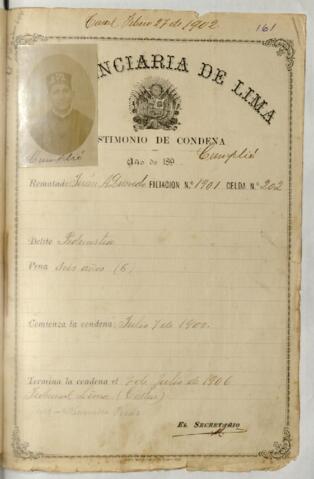 Febrero 27 de 1902
161
NCIARIA DE LIMA
STIMONIO DE CONDENA
Año de 189
Cumplió
Cumplió
Rematado: Juan FILIACION N.º 1901. CELDA N.º 202
Delito
Pena seis años (6)
Comienza la condena: Julio 7 de 1900.
Termina la condena el 7 de Julio de 1906
Tribunal Lima (Callao)
EL SECRETARIO